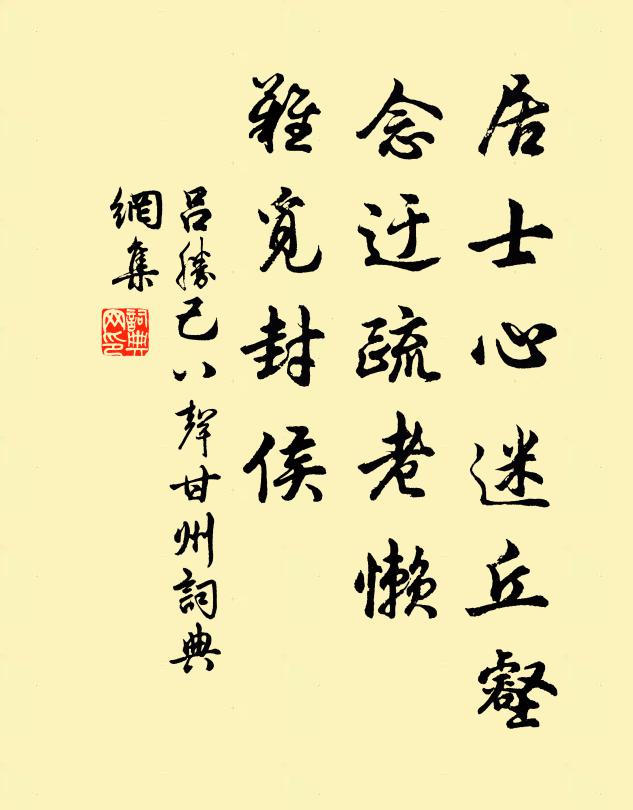 居士心迷丘壑
念迂疏老懒
難覓封侯
呂勝己八聲甘州詞典
網集
詞典網印